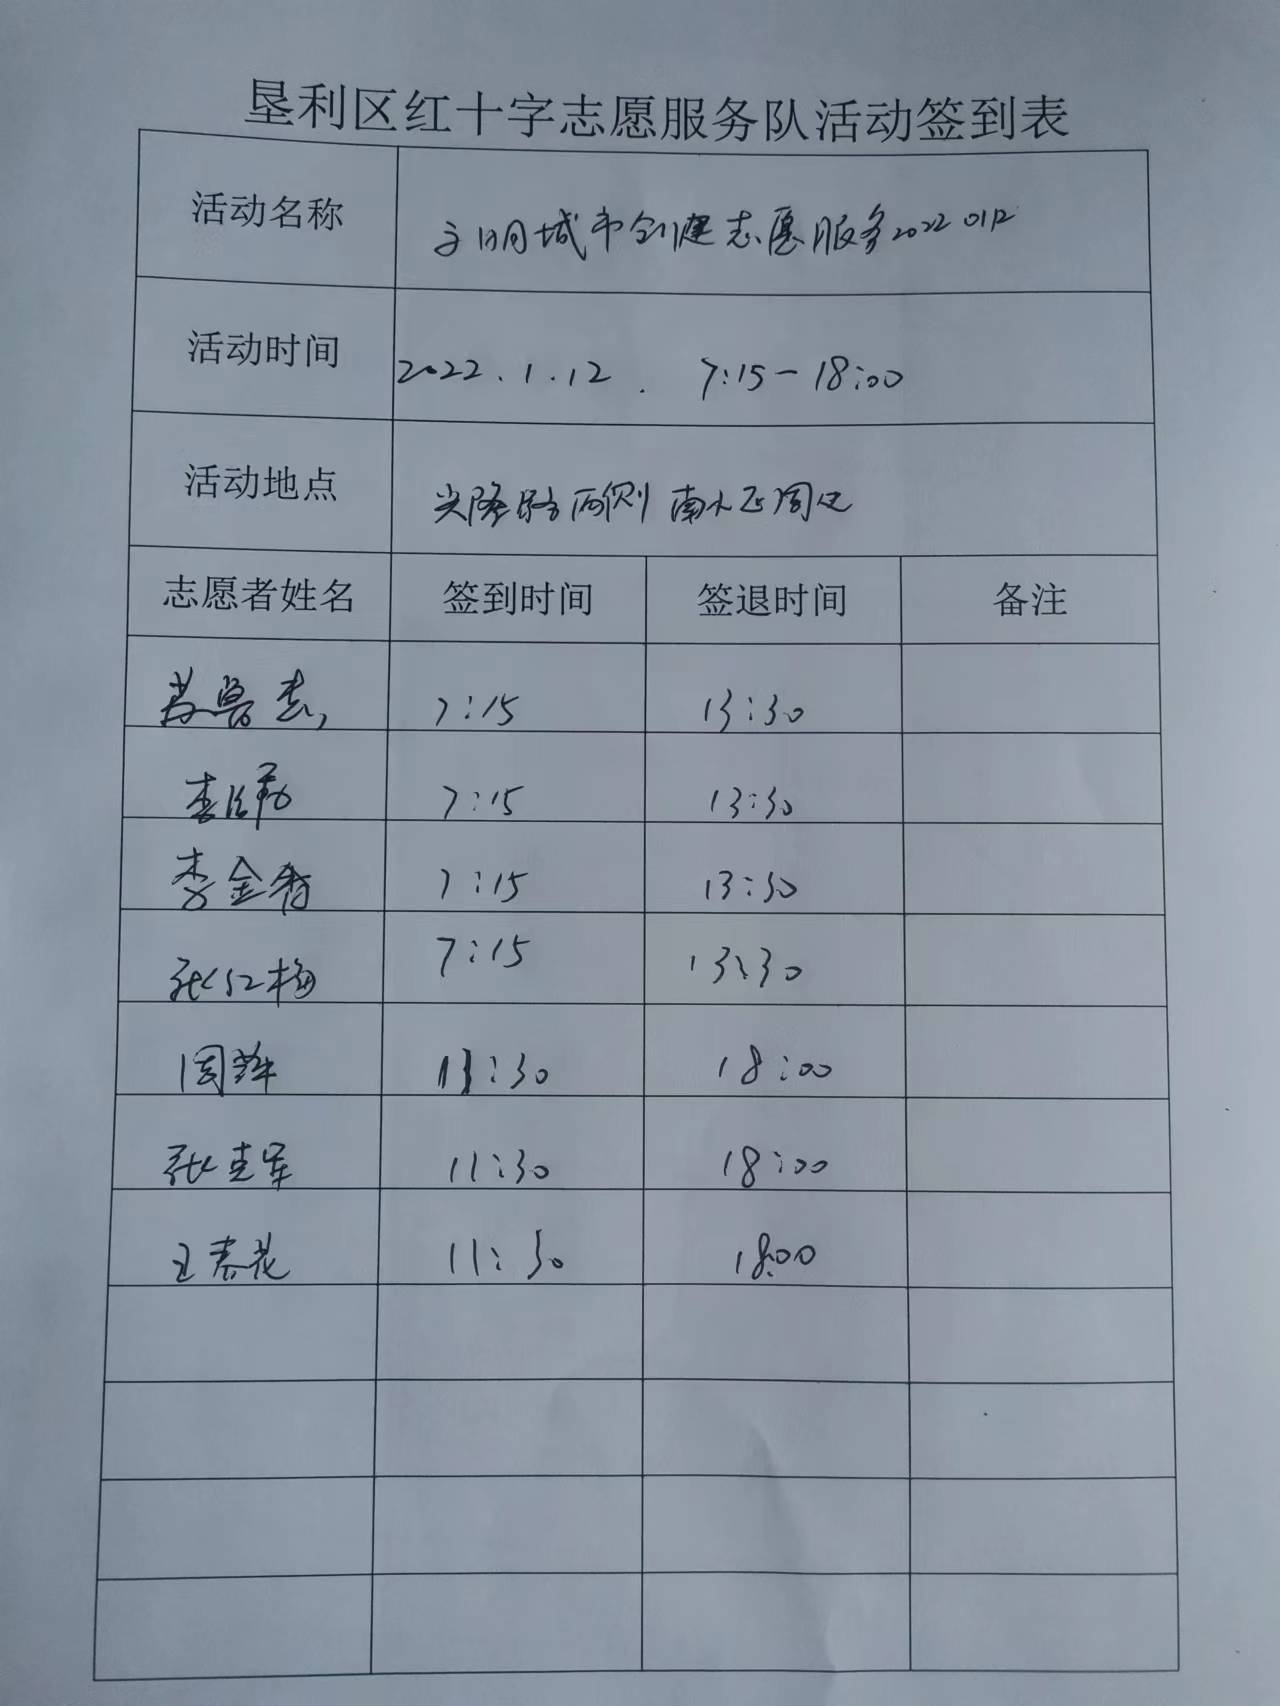 垦利区红十字志愿服务队活动签到表
活动名称 文明城市创建志愿服务20220112
活动时间 2022.1.12. 7:15-18:00
活动地点 兴隆路两侧 南
志愿者姓名 签到时间 签退时间 备注
苏鲁志 7:15 13:30
李 7:15 13:30
李金香 7:15 13:30
张红梅 7:15 13:30
周 11:30 18:00
张克军 11:30 18:00
王春花 11:30 18:00